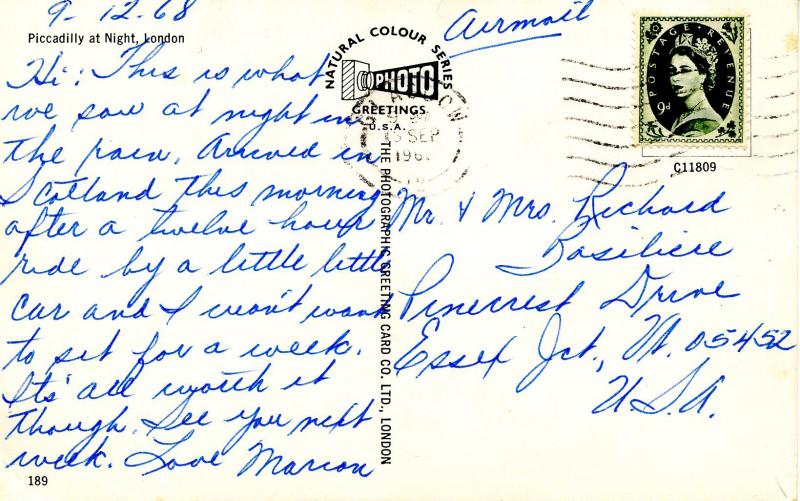 9-12-68
Airmail
Piccadilly at Night, London
NATURAL COLOUR SERIES
PHOTO
GREETINGS
U.S.A.
POSTAGE REVENUE
9d
C11809
SEP
THE PHOTOGRAPHIC GREETING CARD CO. LTD., LONDON
Hi: This is what
we saw at night in
the rain. Arrived in
Scotland this morning
after a twelve hour
ride by a little little
car and I won't want
to sit for a week.
It's all worth it
though. See you next
week. Love Marion
Mr. & Mrs. Richard
Basiliere
Pinecrest Drive
Essex Jct., Vt. 05452
U.S.A.
189